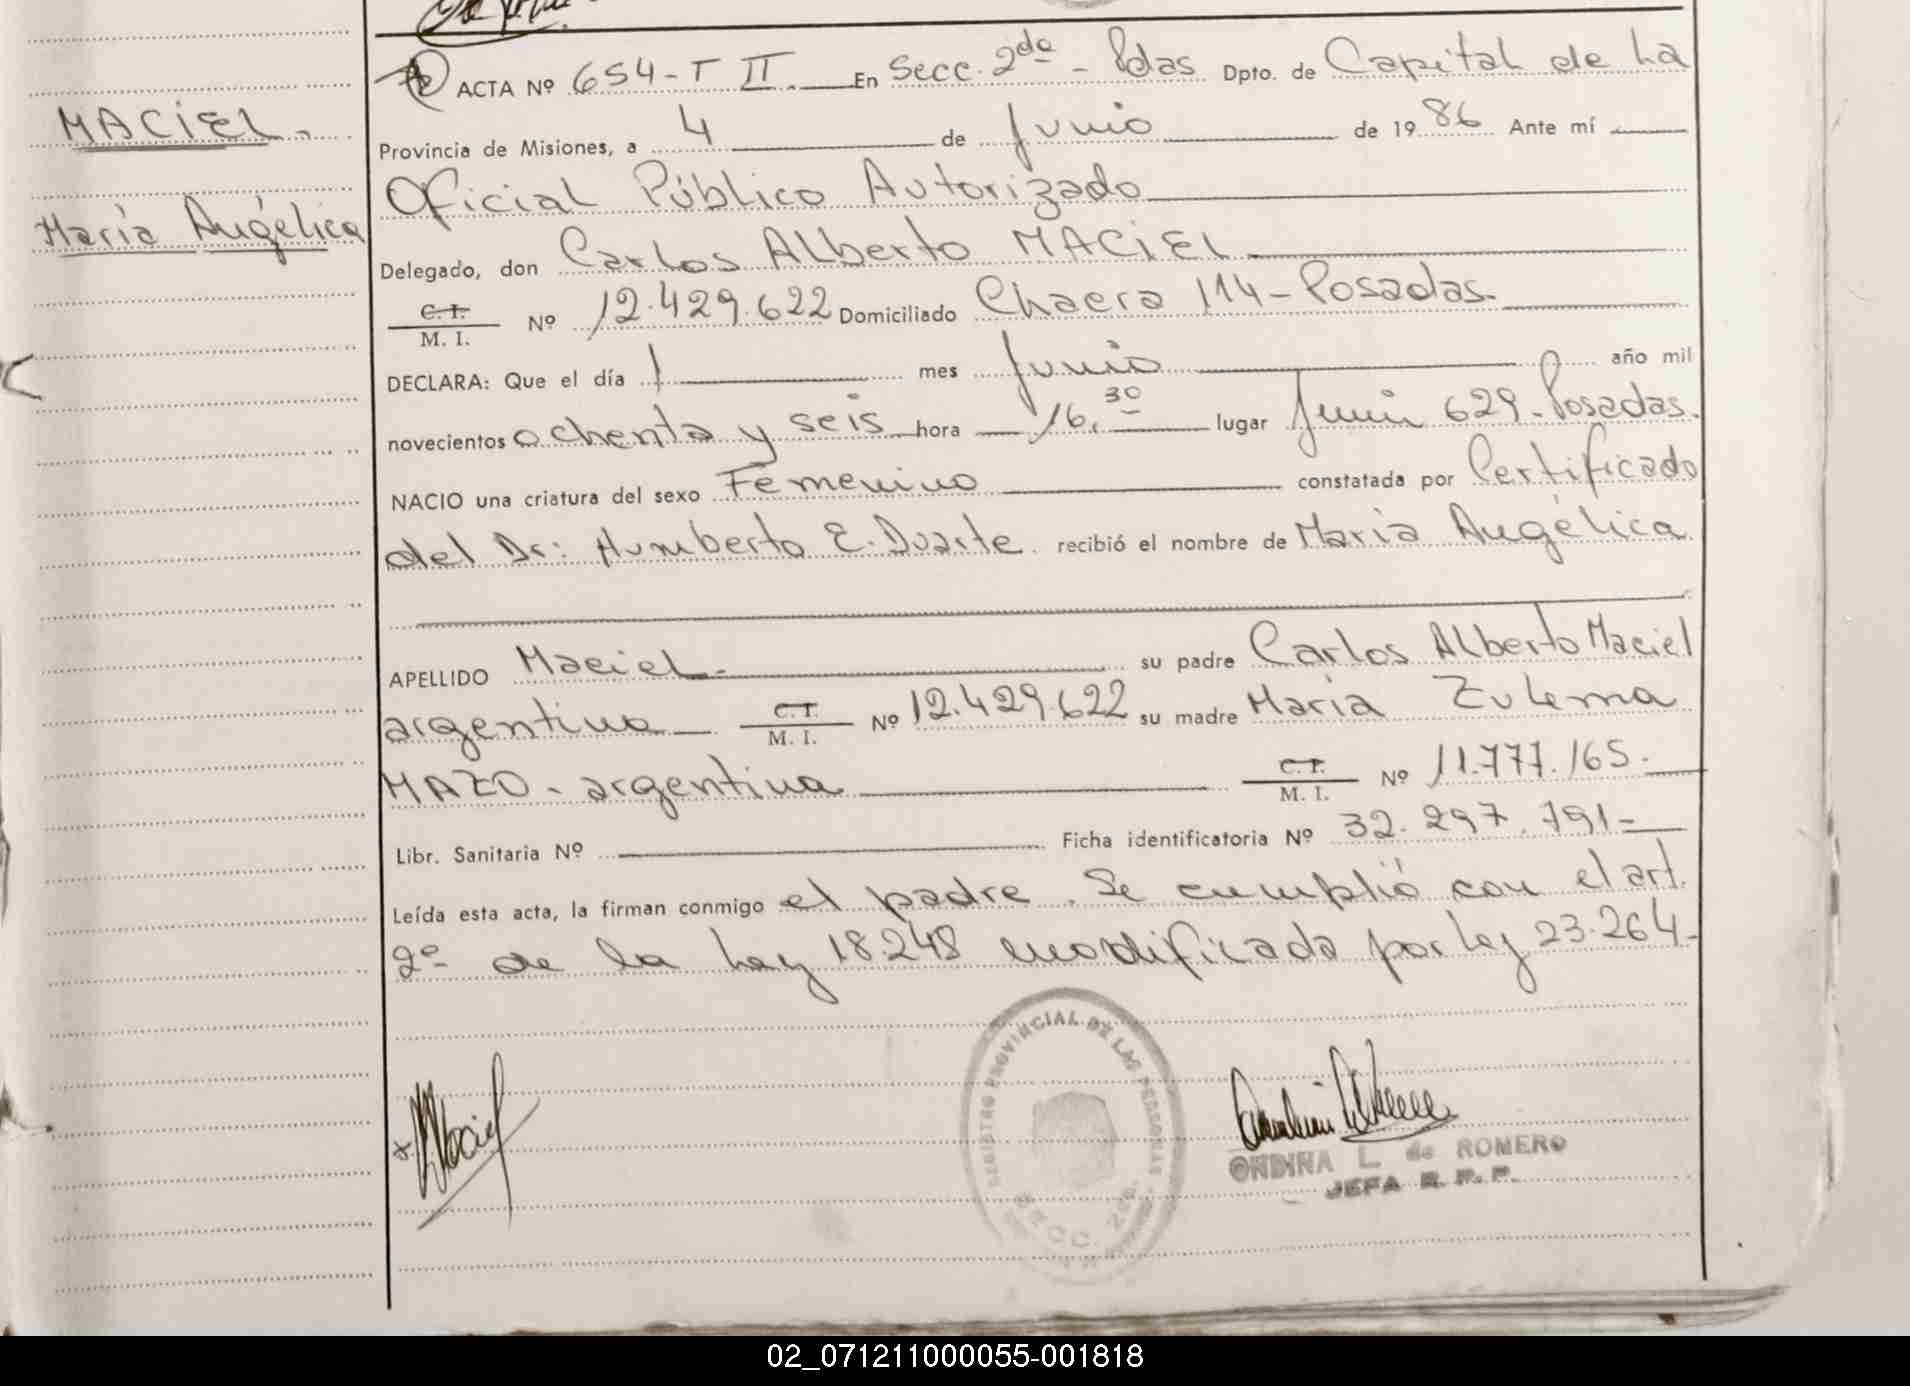 MACIEL.
María Angélica
ACTA Nº 654-T II. En Secc. 2da - Pdas Dpto. de Capital de La
Provincia de Misiones, a 4 de Junio de 1986 Ante mí
Oficial Público Autorizado
Delegado, don Carlos Alberto MACIEL
C.I.
M. I. Nº 12.429.622 Domiciliado Chacra 114-Posadas.
DECLARA: Que el día 1 mes Junio año mil
novecientos ochenta y seis hora 16.30 lugar Junin 629-Posadas.
NACIO una criatura del sexo Femenino constatada por Certificado
del Dr: Humberto E. Duarte recibió el nombre de María Angélica
APELLIDO Maciel su padre Carlos Alberto Maciel
argentino C.I. M. I. Nº 12.429.622 su madre María Zulema
MAZO - argentina C.I. M. I. Nº 11.777.165.
Libr. Sanitaria Nº Ficha identificatoria Nº 32.297.791-
Leída esta acta, la firman conmigo el padre. Se cumplió con el art.
2º de la Ley 18.248 modificada por Ley 23.264-
REGISTRO PROVINCIAL DE LAS PERSONAS
SECC. 2da.
Maciel
ONDINA L. de ROMERO
JEFA R. P. P.
02_071211000055-001818